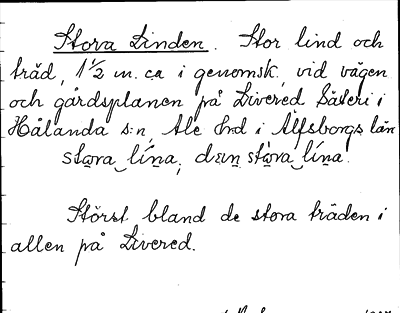 Stora Linden. Stor lind och
träd, 1½ m. ca i genomsk., vid vägen
och gårdsplanen på Livered Säteri i
Hålanda s:n, Ale hrd i Älfsborgs län
stora lína, den stòra lína.
Störst bland de stora träden i
allen på Livered.